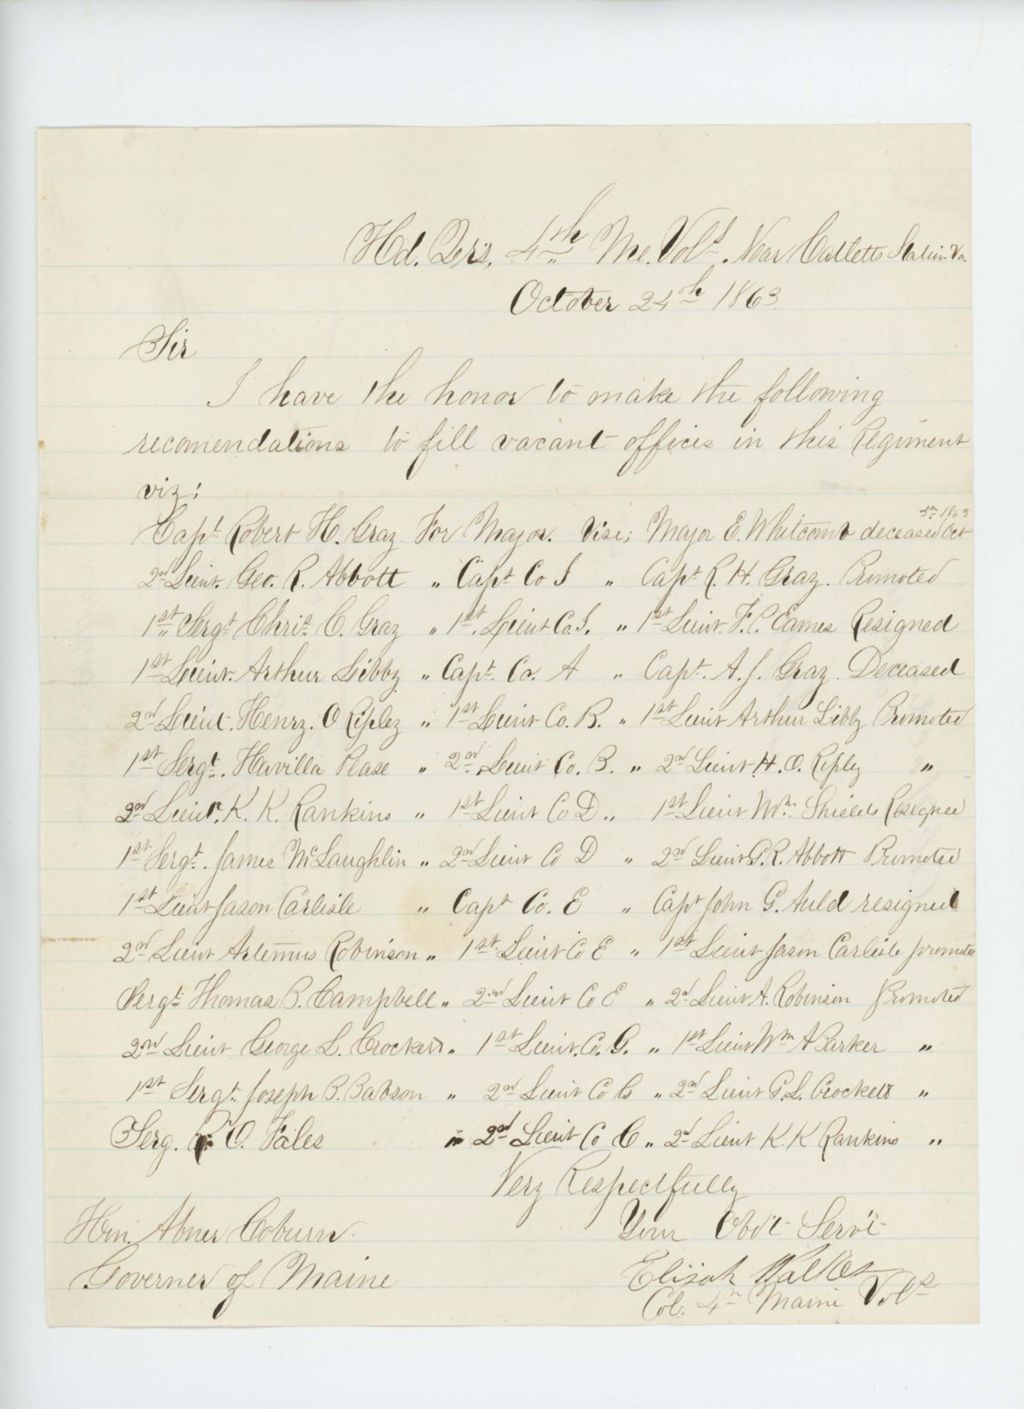 Hd. Qrs. 4th Me. Vols. Near Catletts Station Va.
October 24th 1863.
Sir
I have the honor to make the following
recomendations to fill vacant offices in this Regiment
viz:
Capt Robert H. Gray For Major. Vise; Major E. Whitcomb deceased Oct 5th 1863
2nd Lieut. Geo. R. Abbott " Capt Co I " Capt R. H. Gray. Promoted
1st Sergt Chris. C. Gray " 1st Lieut Co. I. " 1st Lieut. F. C. Eames Resigned
1st Lieut. Arthur Libby " Capt. Co. A " Capt. A. J. Gray Deceased
2nd Lieut. Henry. O Ripley " 1st Lieut Co. B. " 1st Lieut Arthur Libby Promoted
1st Sergt. Havilla Pease " 2nd Lieut Co. B. " 2nd Lieut H. O. Ripley "
2nd Lieut. K. K. Rankins " 1st Lieut Co D " 1st Lieut Wm. Shields Resigned
1st Sergt. James McLaughlin " 2nd Lieut Co D " 2nd Lieut G. R. Abbott Promoted
1st Lieut Jason Carlisle " Capt Co. E " Capt John G. Auld resigned
2nd Lieut Artemus Robinson " 1st Lieut Co E " 1st Lieut Jason Carlisle promoted
Sergt Thomas B. Campbell " 2nd Lieut Co E " 2d Lieut A. Robinson Promoted
2nd Lieut George L. Crockett " 1st Lieut. Co. G. " 1st Lieut Wm A Barker "
1st Sergt. Joseph B. Babson " 2nd Lieut Co G " 2nd Lieut G. L. Crockett "
Serg. O. Fales " 2nd Lieut Co C " 2d Lieut K K Rankins "
Very Respectfully
Your Obdt Servt
Hon. Abner Coburn.
Elijah Walker
Governer of Maine
Col. 4th Maine Vols